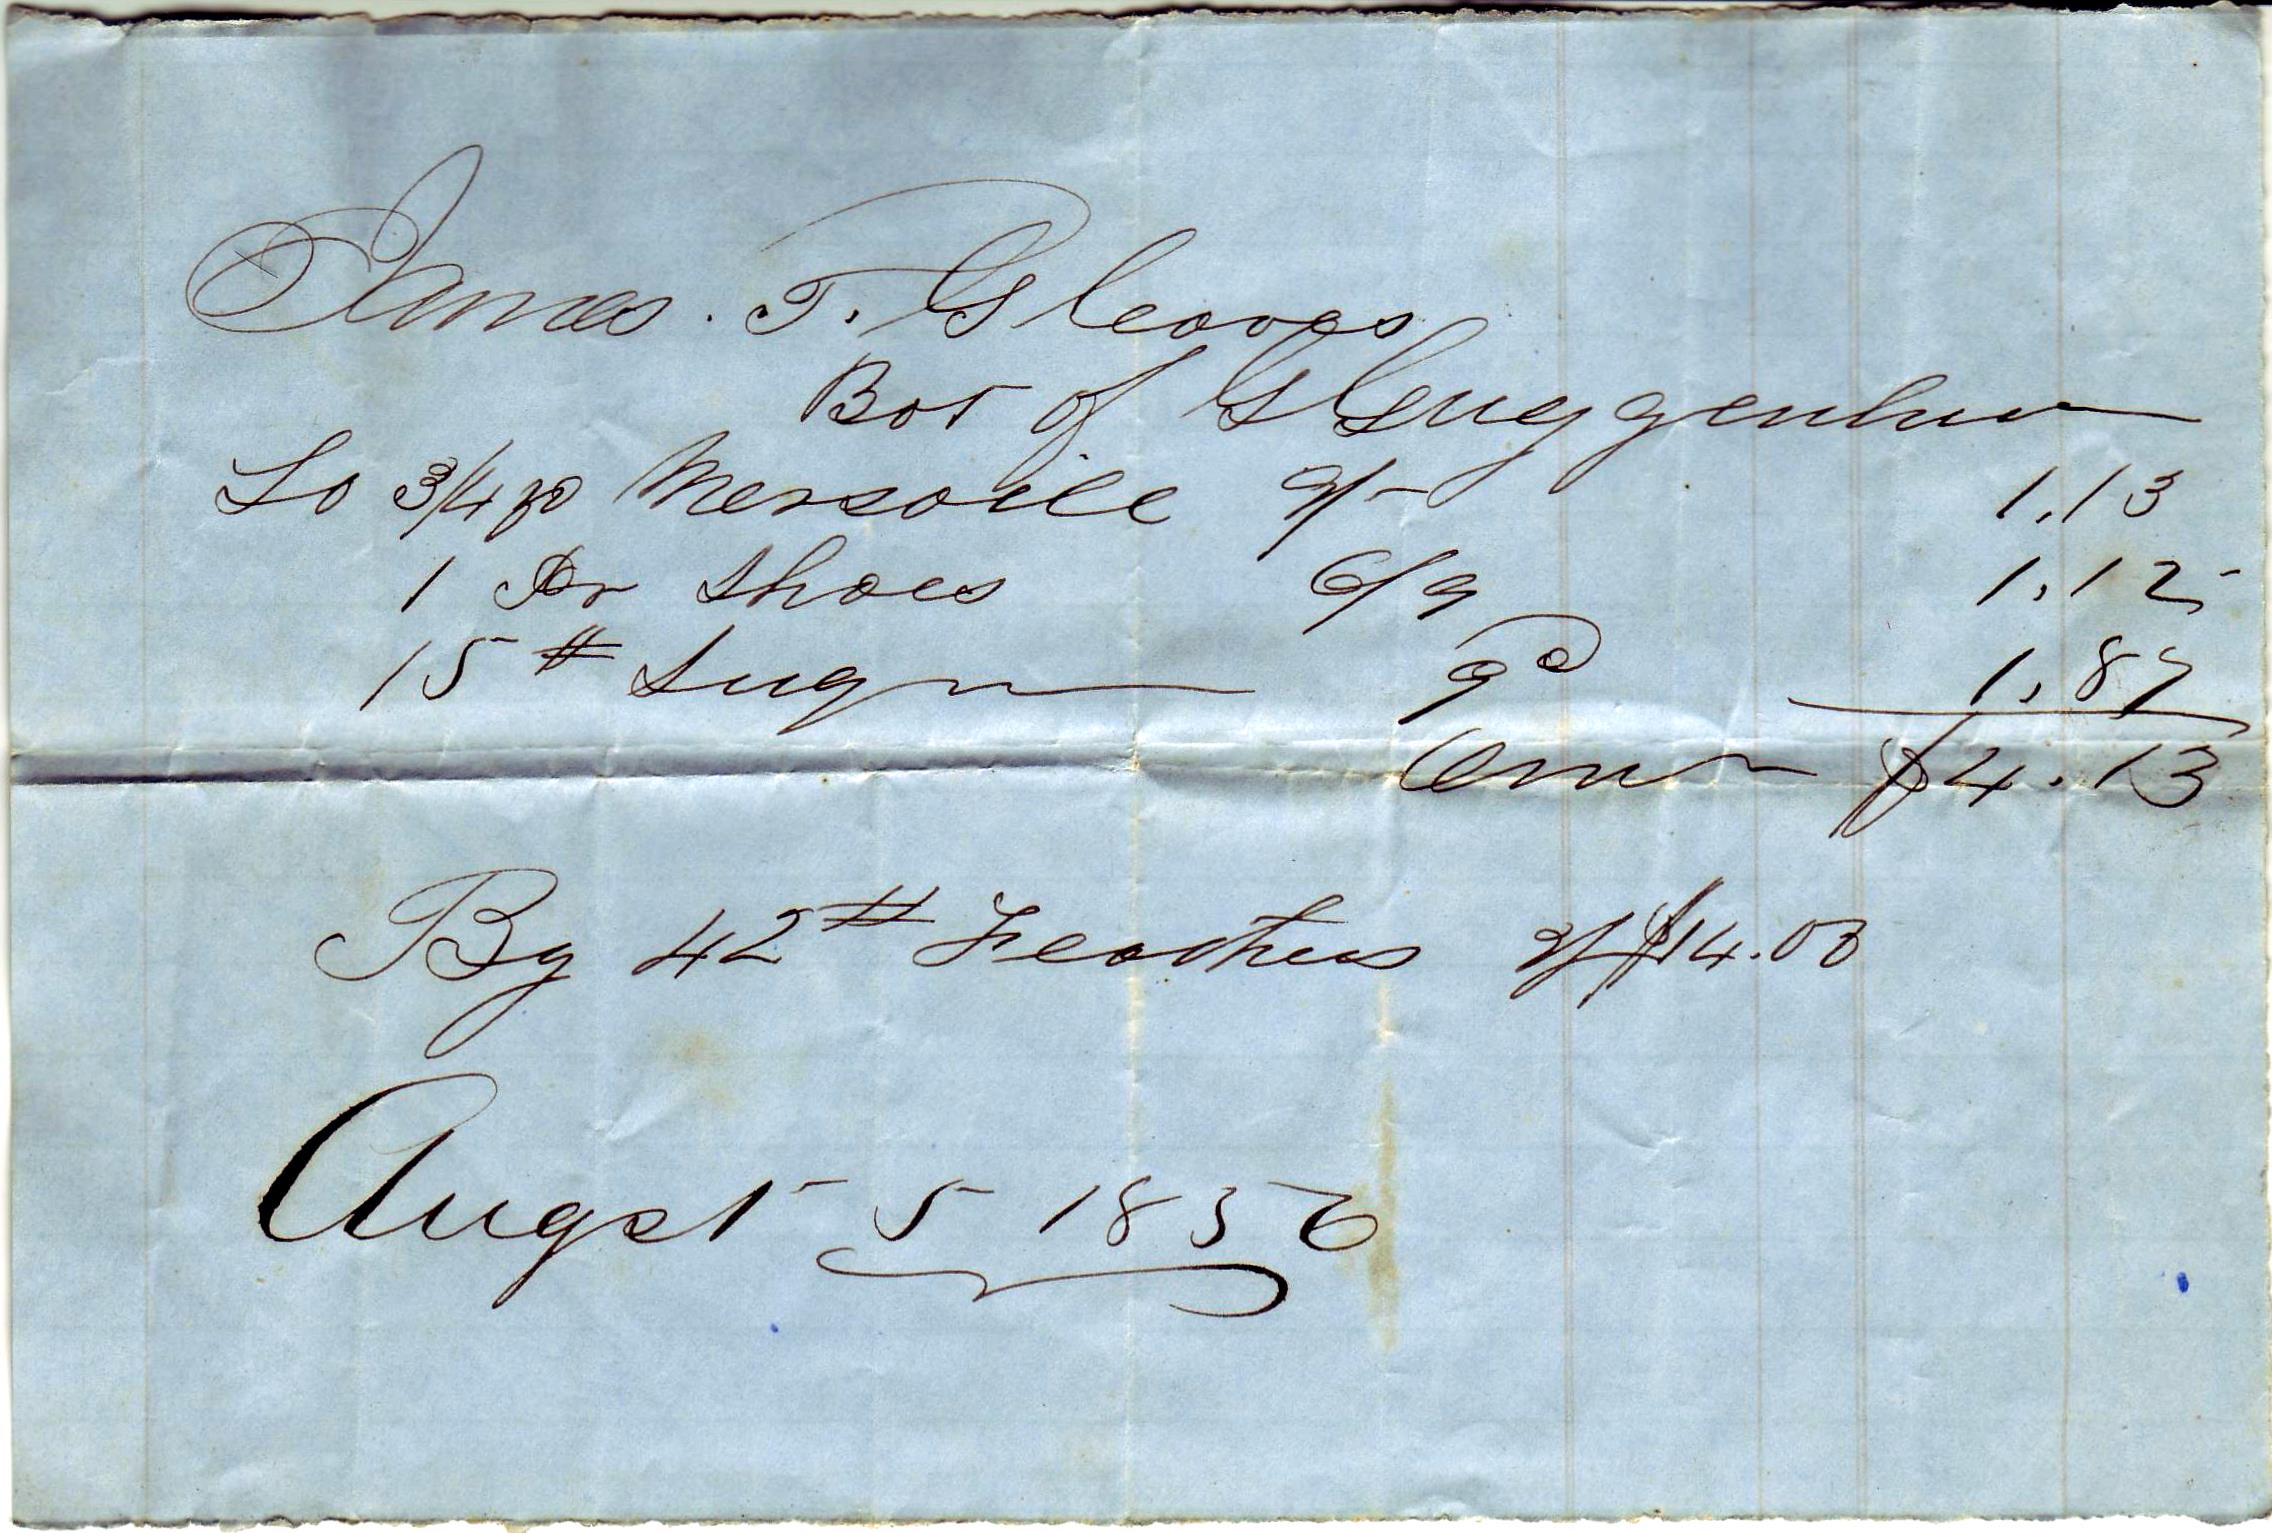 James. T. Gleaves
Bot of G Guggenheim
To 3/4 yd Mersaille 9/- 1.13
1 Pr Shoes 6/9 1.12
15 # Sugar 9d 1.87
$4.13
By 42 # Feathers 2/ $14.00
Augst 5 1856